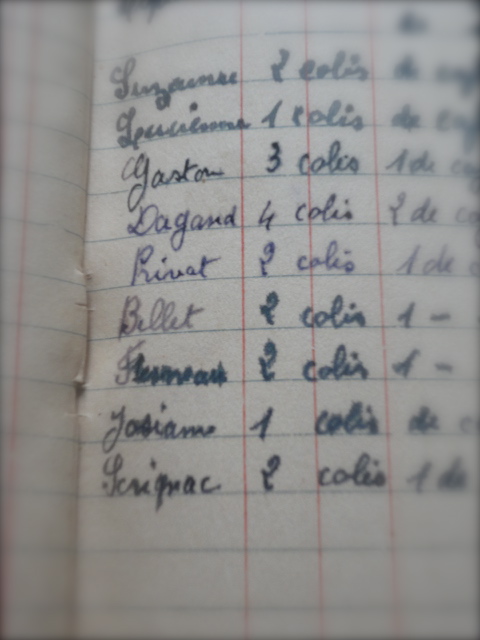 Suzanne 2 colis de
Lucienne 1 colis de
Gaston 3 colis 1 de
Dagand 4 colis 2 de
Privat 2 colis 1 de
Billet 2 colis 1 -
2 colis 1 -
Josiane 1 colis de
Serignac 2 colis 1 de